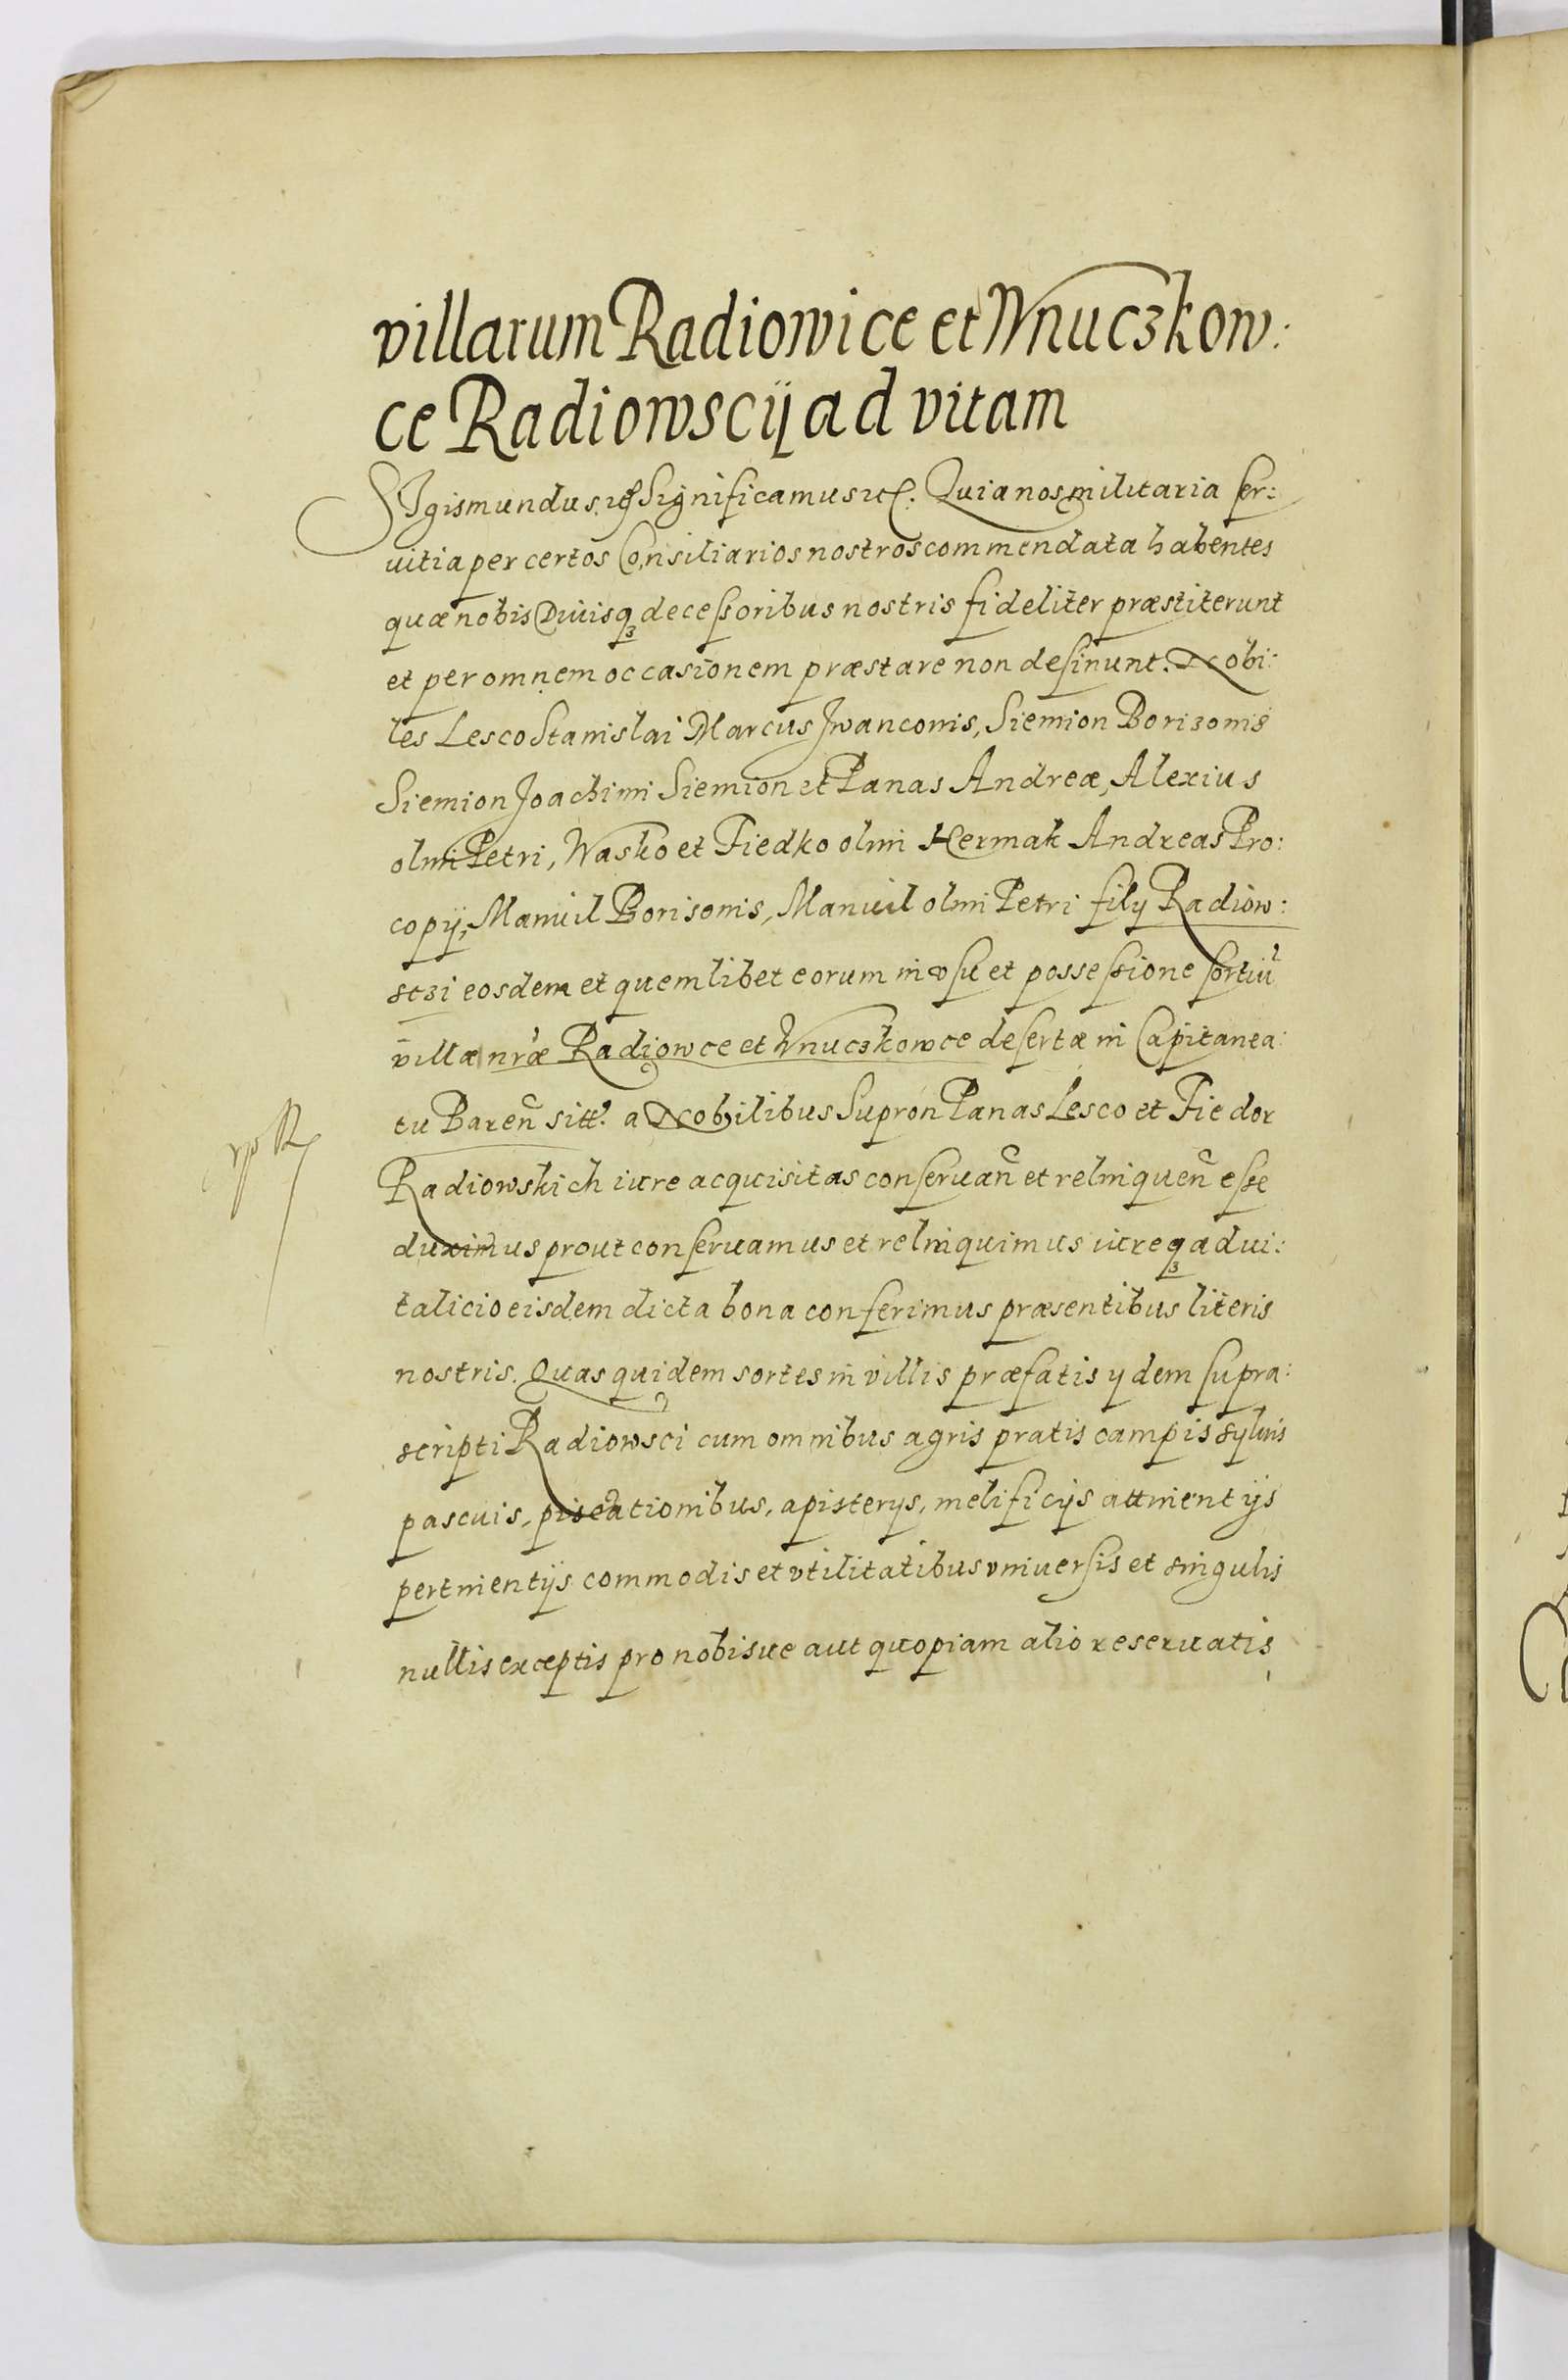 villarum Radiowice et Wnuczkow:
ce Radiowscij ad vitam
SIgismundus etc Significamus etc. Quia nos militaria ser:
uitia per certos Consiliarios nostros commendata habentes
quæ nobis Diuisqȝ decessoribus nostris fideliter præstiterunt
et per omnem occasionem præstare non desinunt. Nobi:
les Lesco Stanislai Marcus Iwanconis, Siemion Borizonis
Siemion Joachimi Siemion et Panas Andreæ, Alexius
olim Petri, Wasko et Fiedko olim Hermak Andreas Pro:
copij, Manuil Borisonis, Manuil olim Petri filij Radiow:
sczi eosdem et quemlibet eorum in vsu et possessione sortiu
villæ nræ Radiowce et Wnuczkowce desertæ in Capitanea:
tu Bareñ sitt. a Nobilibus Supron Panas Lesco et Fiedor
Radiowskich iure acquisitas conseruañ et relinqueñ esse
duximus prout conseruamus et relinquimus iureqȝ aduí:
talicio eisdem dicta bona conferimus præsentibus literis
nostris. Quas quidem sortes in villis præfatis ijdem supra:
scripti Radiowsci cum omnibus agris pratis campis syluis
pascuis, piscationibus, apisterijs, melificijs attinentijs
pertinentijs commodis et vtilitatibus vniuersis et singulis
nullis exceptis pro nobisue aut quopiam alio reseruatis